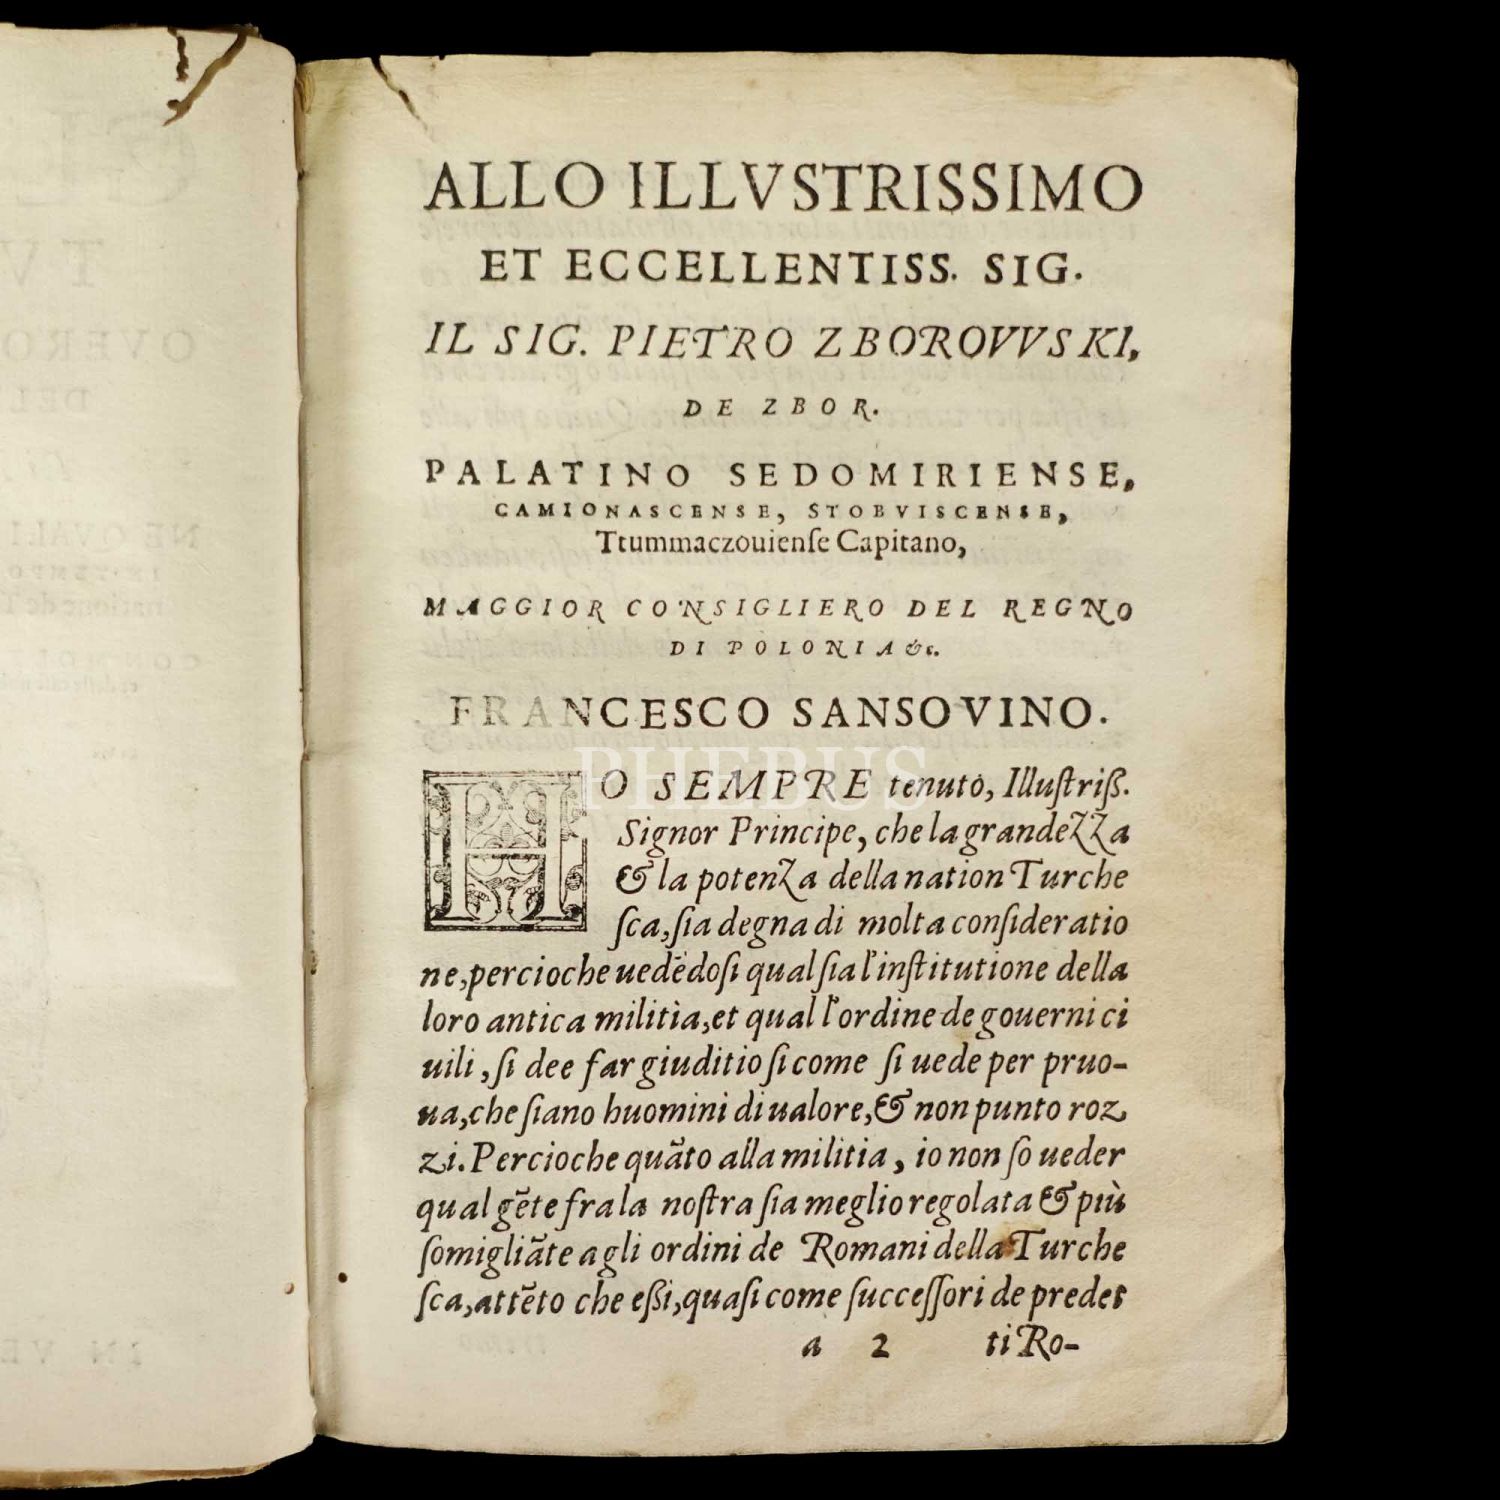 ALLO ILLVSTRISSIMO
ET ECCELLENTISS. SIG.
IL SIG. PIETRO ZBOROVVSKI,
DE ZBOR.
PALATINO SEDOMIRIENSE,
CAMIONASCENSE, STOBVISCENSE,
Ttummaczouienſe Capitano,
MAGGIOR CONSIGLIERO DEL REGNO
DI POLONIA &c.
FRANCESCO SANSOVINO.
PHEBUS
HO SEMPRE tenuto, Illuſtriß.
Signor Principe, che la grandezza
& la potenza della nation Turche
ſca, ſia degna di molta conſideratio
ne, percioche uedēdoſi qual ſia l'inſtitutione della
loro antica militia, et qual l'ordine de gouerni ci
uili, ſi dee far giuditio ſi come ſi uede per pruo-
ua, che ſiano huomini di ualore, & non punto roz
zi. Percioche quāto alla militia, io non ſo ueder
qual gēte fra la noſtra ſia meglio regolata & più
ſomigliāte agli ordini de Romani della Turche
ſca, attēto che eßi, quaſi come ſucceſſori de predet
a 2 ti Ro-